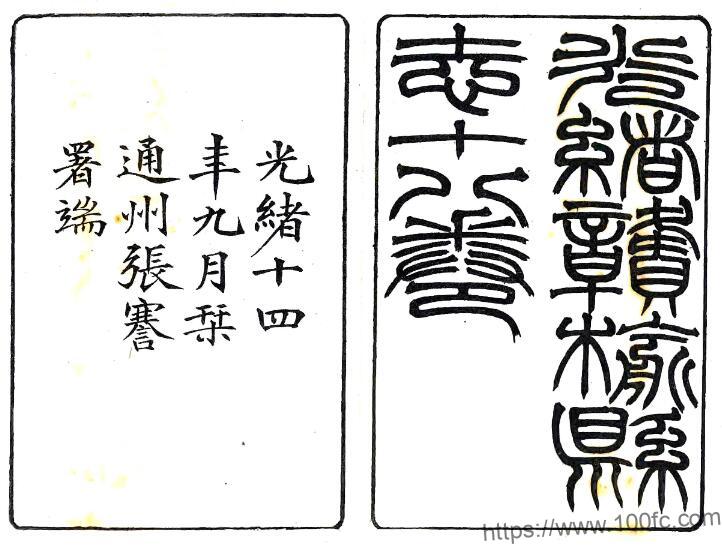 光緒贛榆縣
志十八卷
光緒十四
年九月栞
通州張謇
署端
https://www.100fc.com